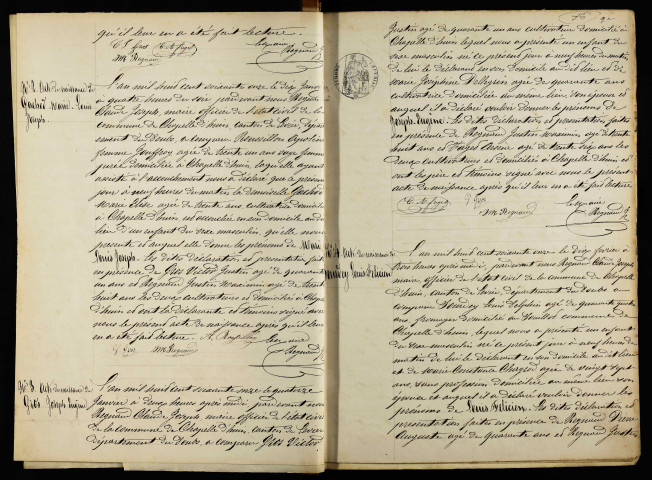 qu'il leur en a été fait lecture.
Regnaud
M Regnaud
N° 2. Acte de naissance de
Marie Louis
Joseph.
L'an mil huit cent soixante onze le dix Janvier
à quatre heures du soir pardevant nous Regnaud
Claude Joseph, maire officier de l'état civil de la
commune de Chapelle d'huin canton de Levier, dépar-
tement du Doubs, a comparu
femme Jouffroy agé de trente un ans sage femme
jurée domiciliée à Chapelle d'huin, laquelle ayant
assisté à l'accouchement nous a déclaré que le présent
jour à neuf heures du matin la demoiselle
Marie Elise agée de trente ans cultivatrice domiciliée
à Chapelle d'huin est accouchée en son domicile au dit
lieu d'un enfant du sexe masculin, qu'elle nous
présente et auquel elle donne les prénoms de Marie
Louis Joseph. Les dites déclaration et présentation faites
en présence de Gros Victor Justin agé de quarante
un ans et Regnaud Justin Maximin agé de trente
huit ans les deux cultivateurs et domiciliés à Chapelle
d'huin et ont la déclarante et témoins signé avec
nous le présent acte de naissance après qu'il leur
en a été fait lecture.
G Gros M Regnaud
Regnaud
N° 3. Acte de naissance de
Gros Joseph Eugène
L'an mil huit cent soixante onze le quatorze
Janvier à deux heures après midi, pardevant nous
Regnaud Claude Joseph maire officier de l'état civil
de la commune de Chapelle d'huin canton de Levier
département du Doubs, a comparu Gros Victor
Justin agé de quarante un ans cultivateur domicilié à
Chapelle d'huin lequel nous a présenté un enfant du
sexe masculin né ce présent jour à neuf heures du matin
de lui le déclarant en son domicile au dit lieu et de
Marie Joséphine agée de quarante ans
cultivatrice domiciliée au même lieu son épouse et
auquel il a déclaré vouloir donner les prénoms de
Joseph Eugène. Les dites déclaration et présentation faites
en présence de Regnaud Justin Maximin, agé de trente
huit ans et agé de trente six ans les
deux cultivateurs et domiciliés à Chapelle d'huin et
ont les père et témoins signé avec nous le présent
acte de naissance après qu'il leur en a été fait lecture
G Gros
M Regnaud
Regnaud
N° 4. Acte de naissance de
Louis Félicien
L'an mil huit cent soixante onze le dix février à
trois heures après midi, pardevant nous Regnaud Claude Joseph
maire officier de l'état civil de la commune de Chapelle
d'huin, canton de Levier, département du Doubs a
comparu Louis Delphin agé de quarante quatre
ans fromager domicilié à commune de
Chapelle d'huin, lequel nous a présenté un enfant
du sexe masculin né ce présent jour à neuf heures du
matin de lui le déclarant en son domicile au dit lieu
et de Marie agée de vingt sept
ans, sans profession domiciliée au même lieu son
épouse et auquel il a déclaré vouloir donner les
prénoms de Louis Félicien. Les dites déclaration et
présentation faites en présence de Regnaud Pierre
Auguste agé de quarante ans et Regnaud Justin